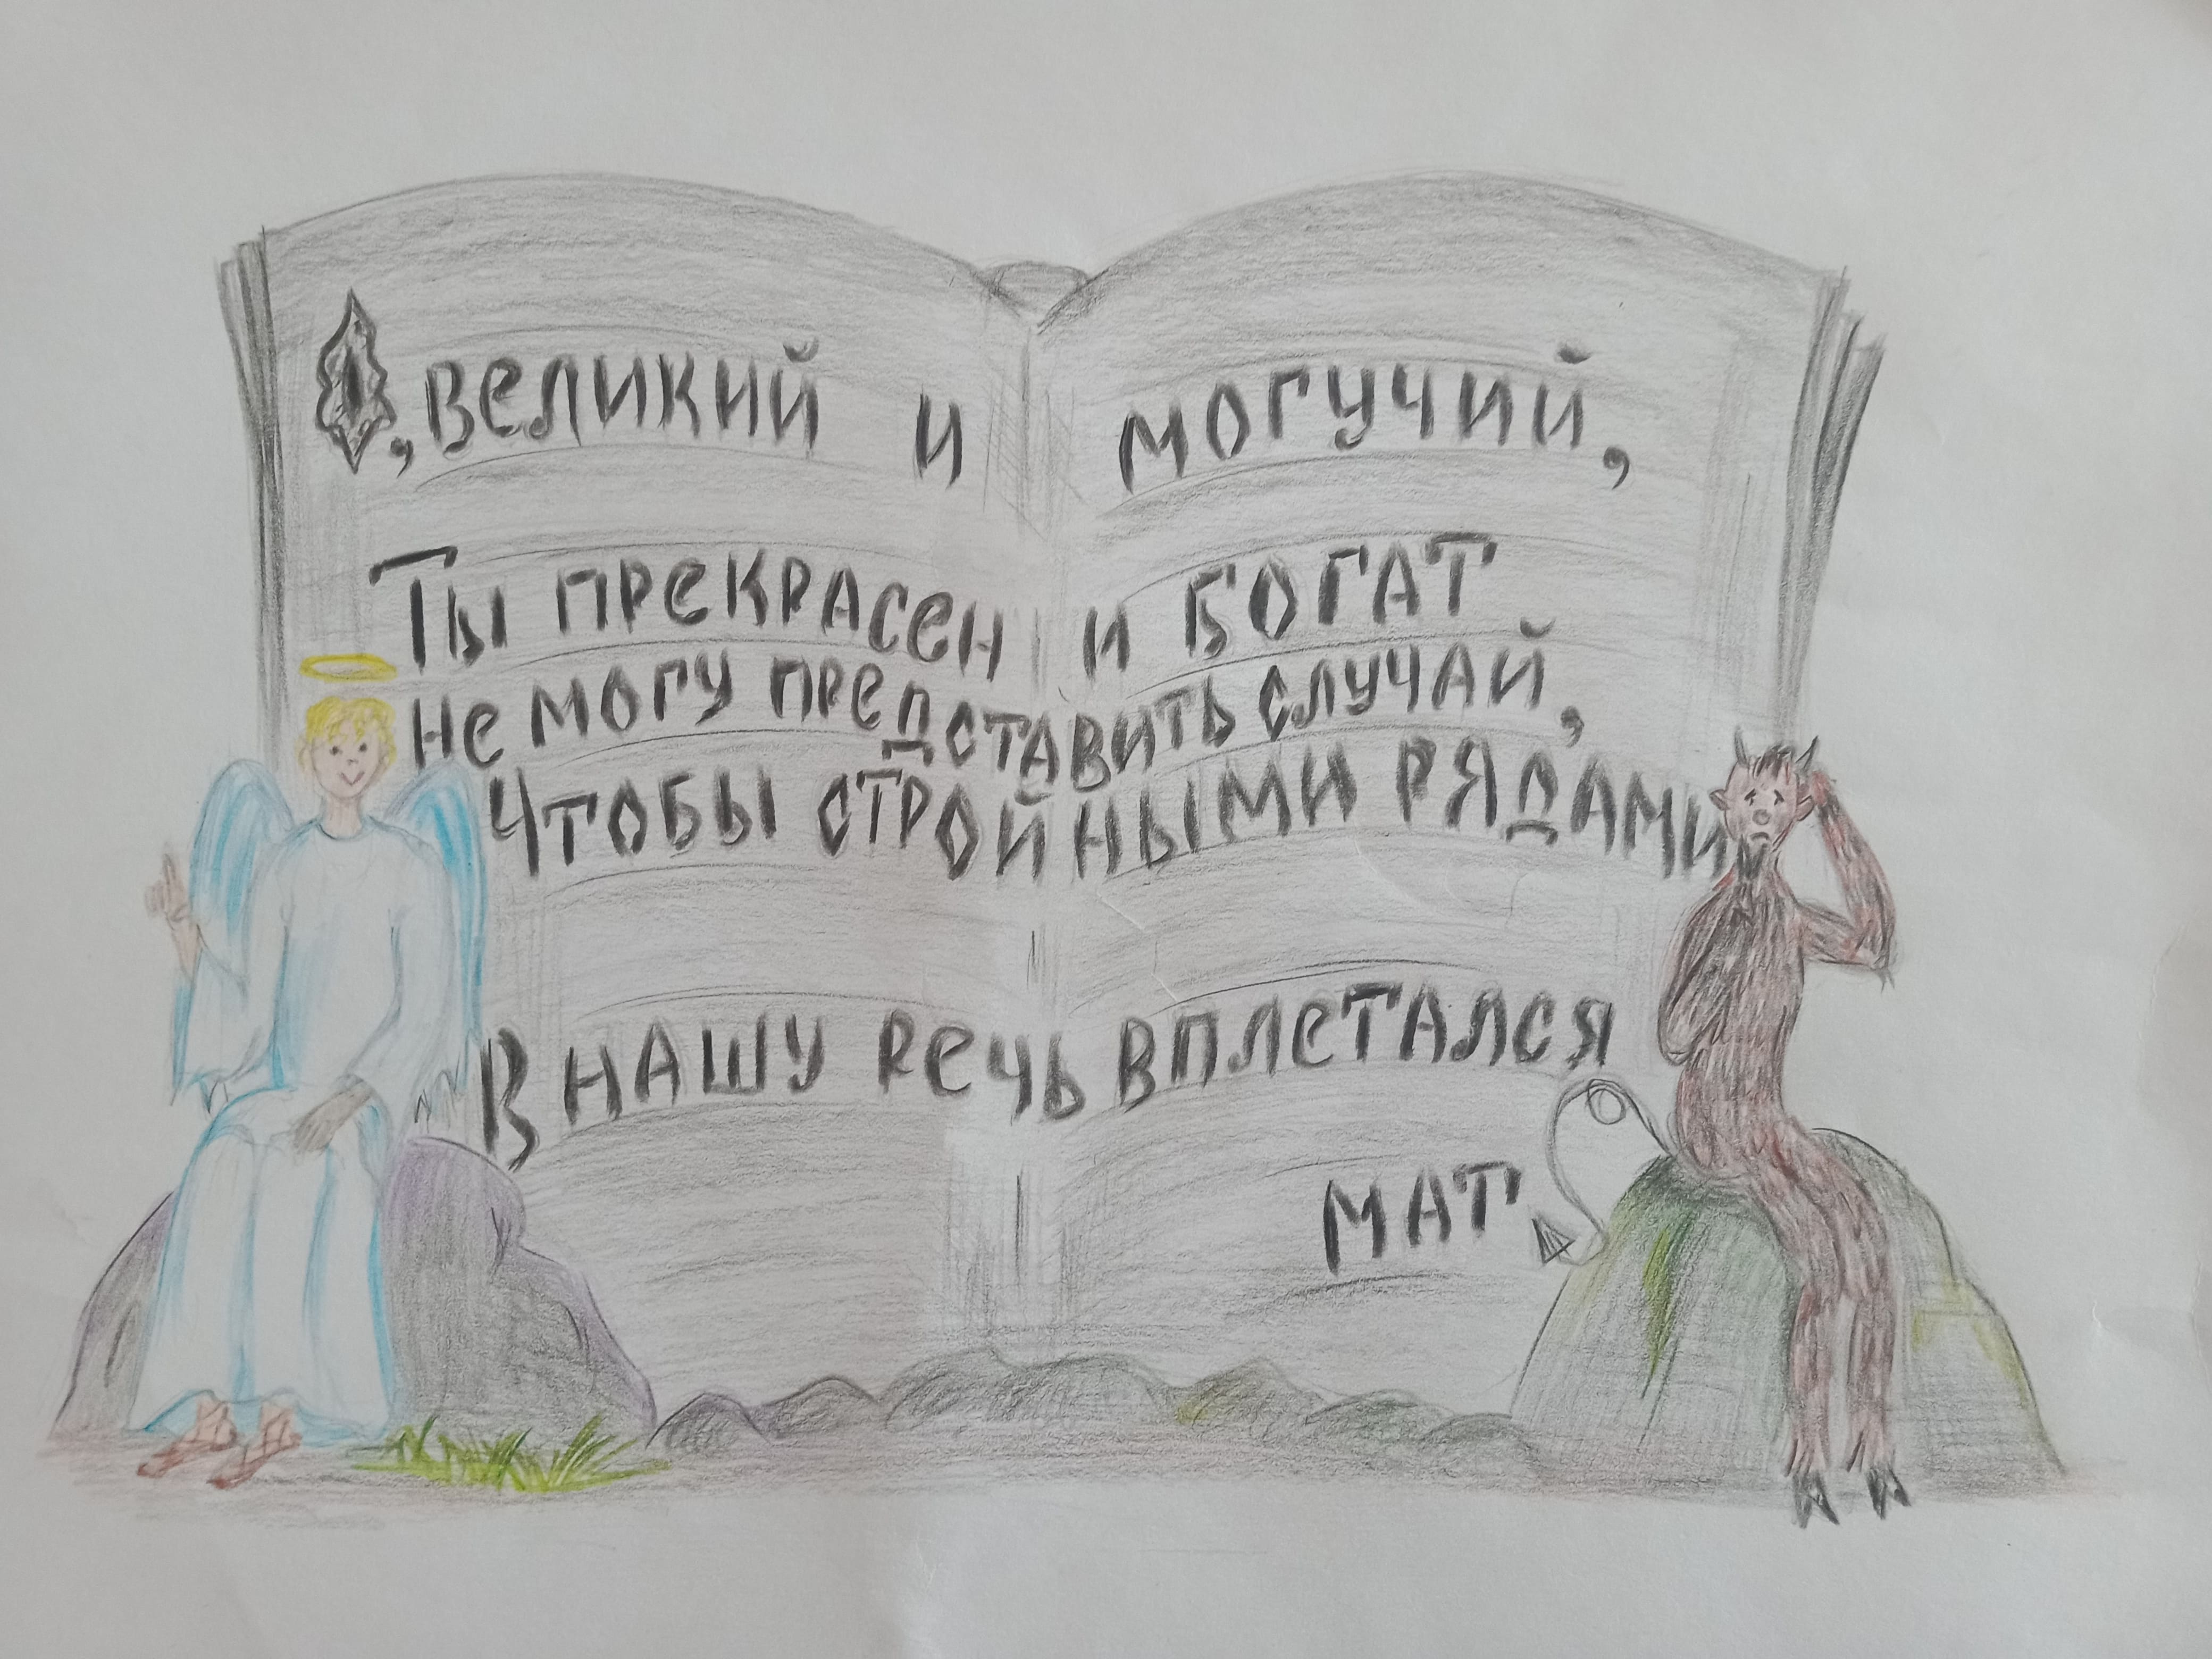 О, великий и могучий,
Ты прекрасен и богат
Не могу представить случай,
Чтобы стройными рядами
В нашу речь вплетался
мат